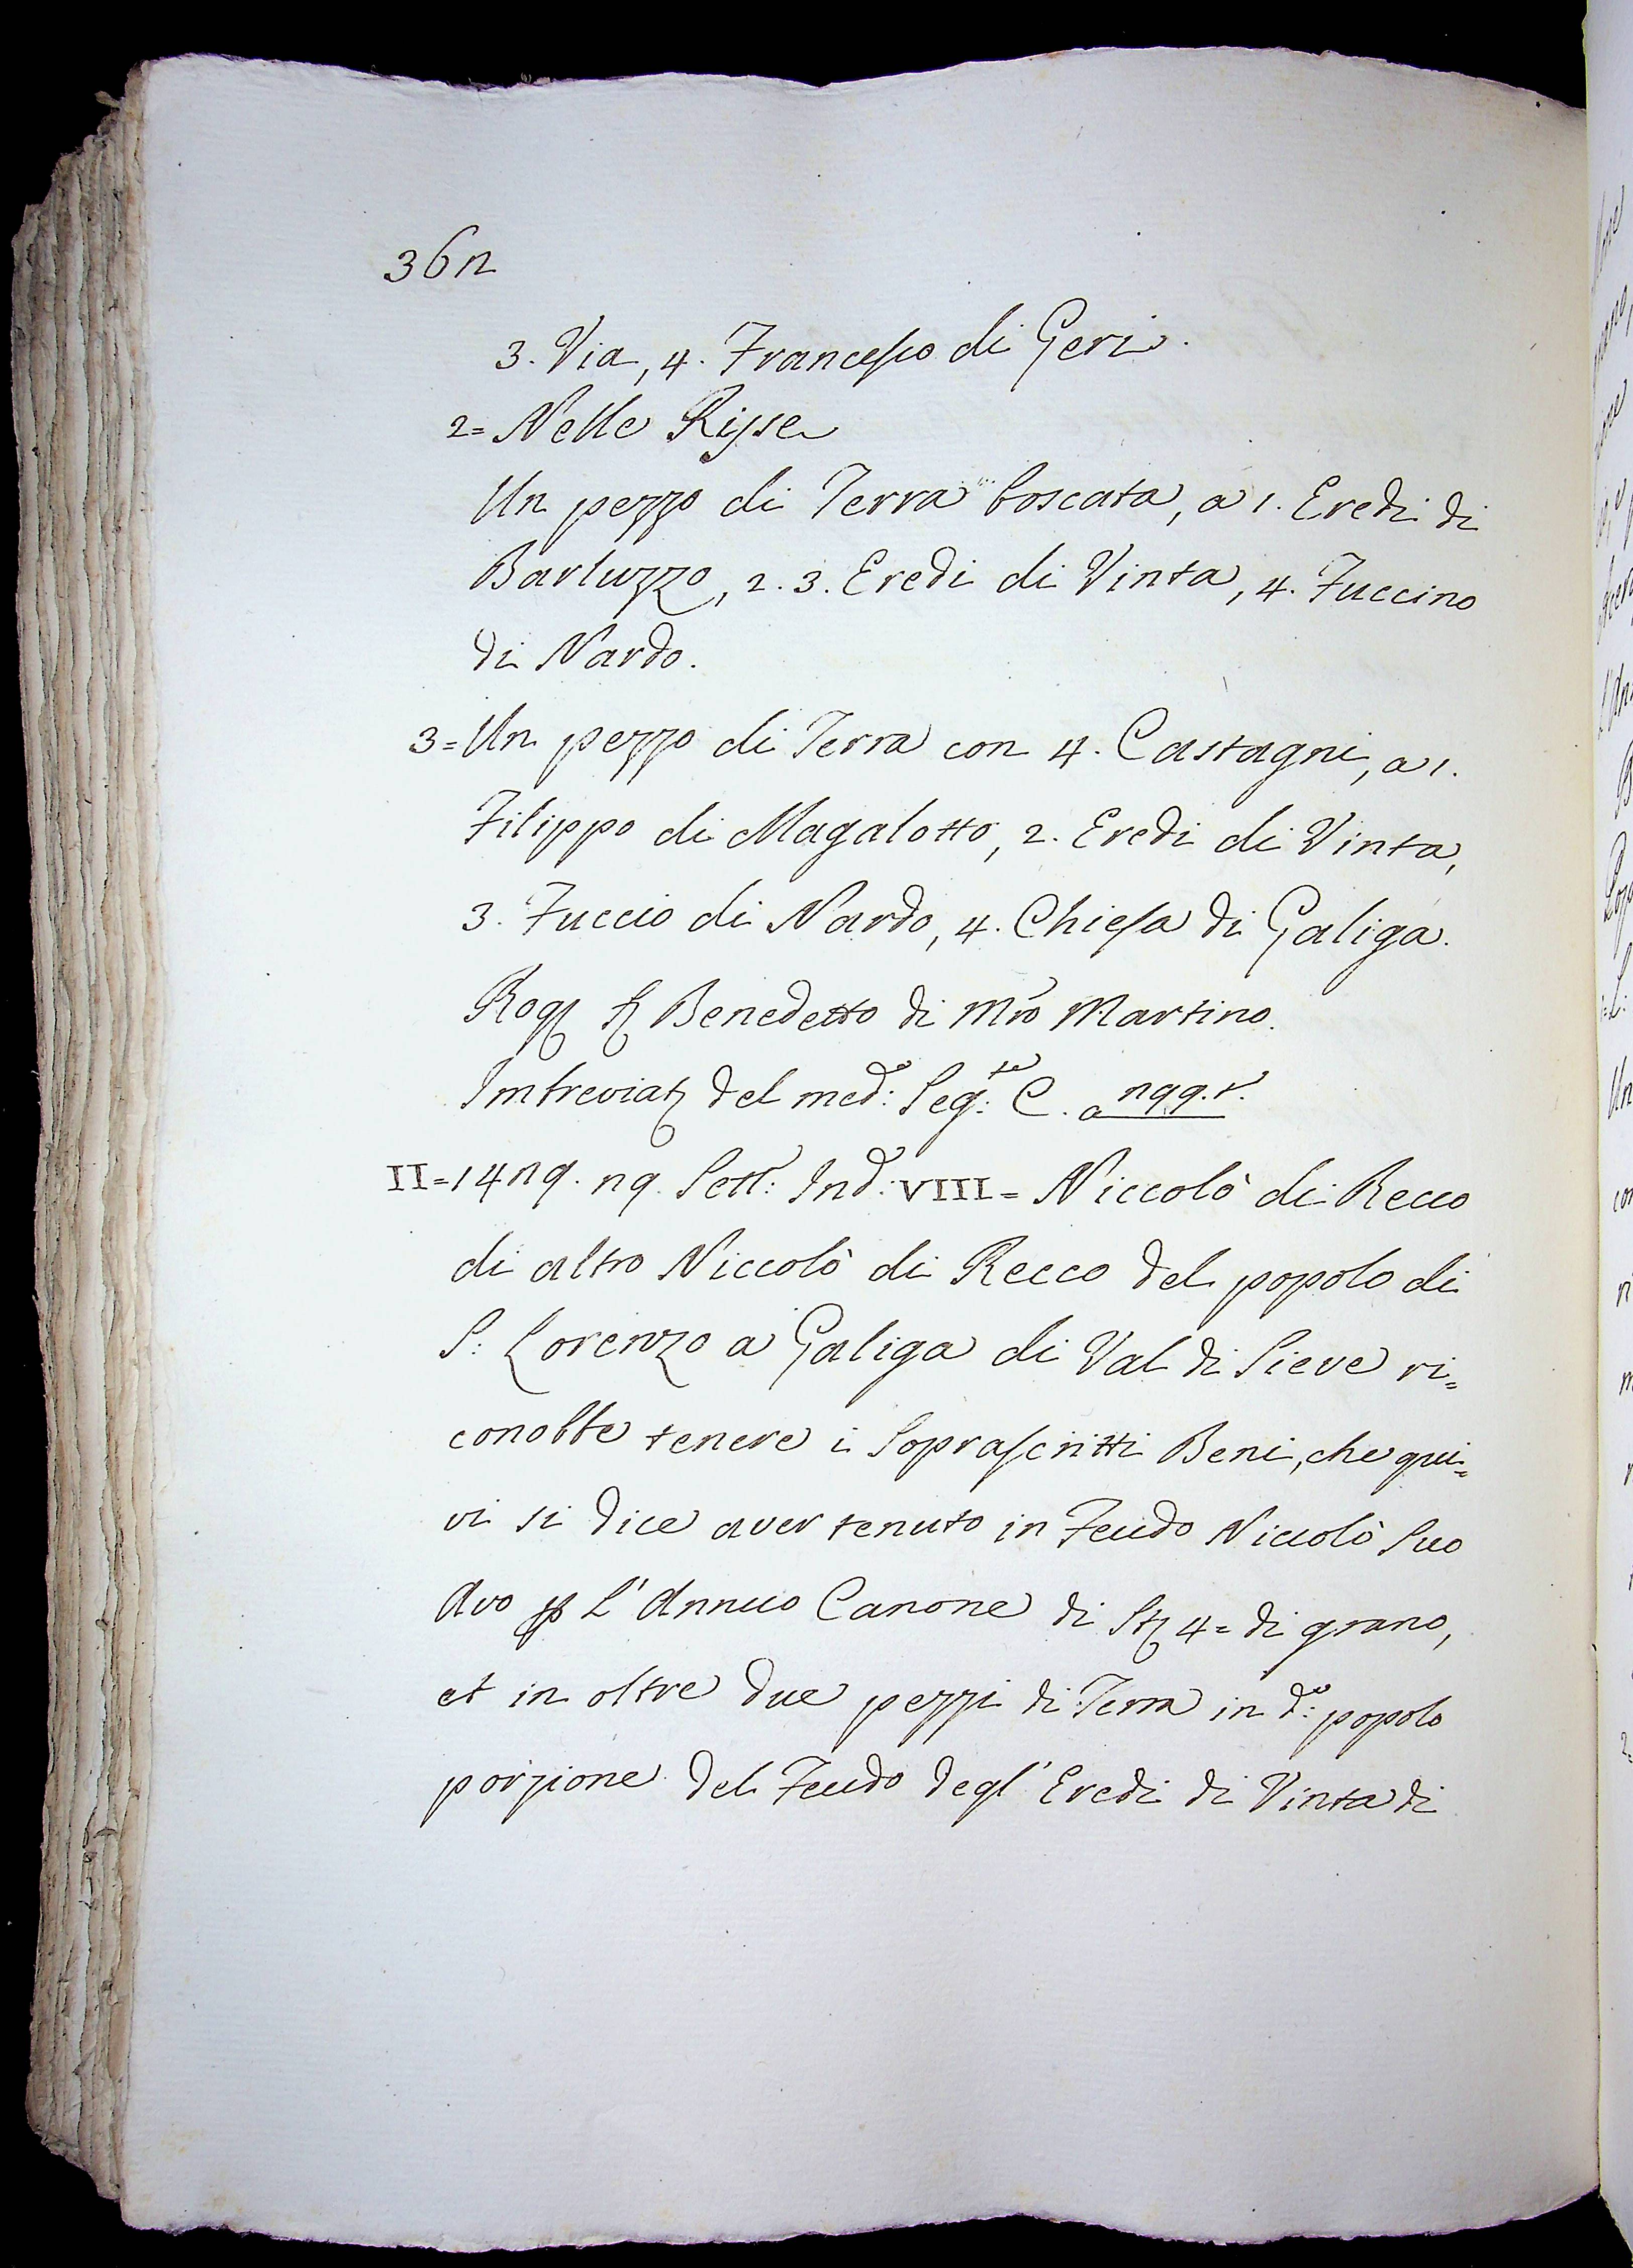 362
3. Via, 4. Francesco di Geri.
2= Nelle Risse
Un pezzo di Terra boscata, a 1. Eredi di
Barluzzo, 2. 3. Eredi di Vinta, 4. Fuccino
di Nardo.
3= Un pezzo di Terra con 4. Castagni, a 1.
Filippo di Magalotto, 2. Eredi di Vinta,
3. Fuccio di Nardo, 4. Chiesa di Galiga.
Rog. Benedetto di Mro Martino.
Imbreviat. del med:o Seg:te C. a 299.t.
II= 1429. 29. Sett: Ind: VIII= Niccolò di Recco
di altro Niccolò di Recco del popolo di
S: Lorenzo a Galiga di Val di Sieve ri=
conobbe tenere i soprascritti Beni, che qui=
vi si dice aver tenuto in Feudo Niccolò suo
Avo p L'Annuo Canone di St. 4= di grano,
et in oltre due pezzi di Terra in d:o popolo
porzione del Feudo degl' Eredi di Vinta di